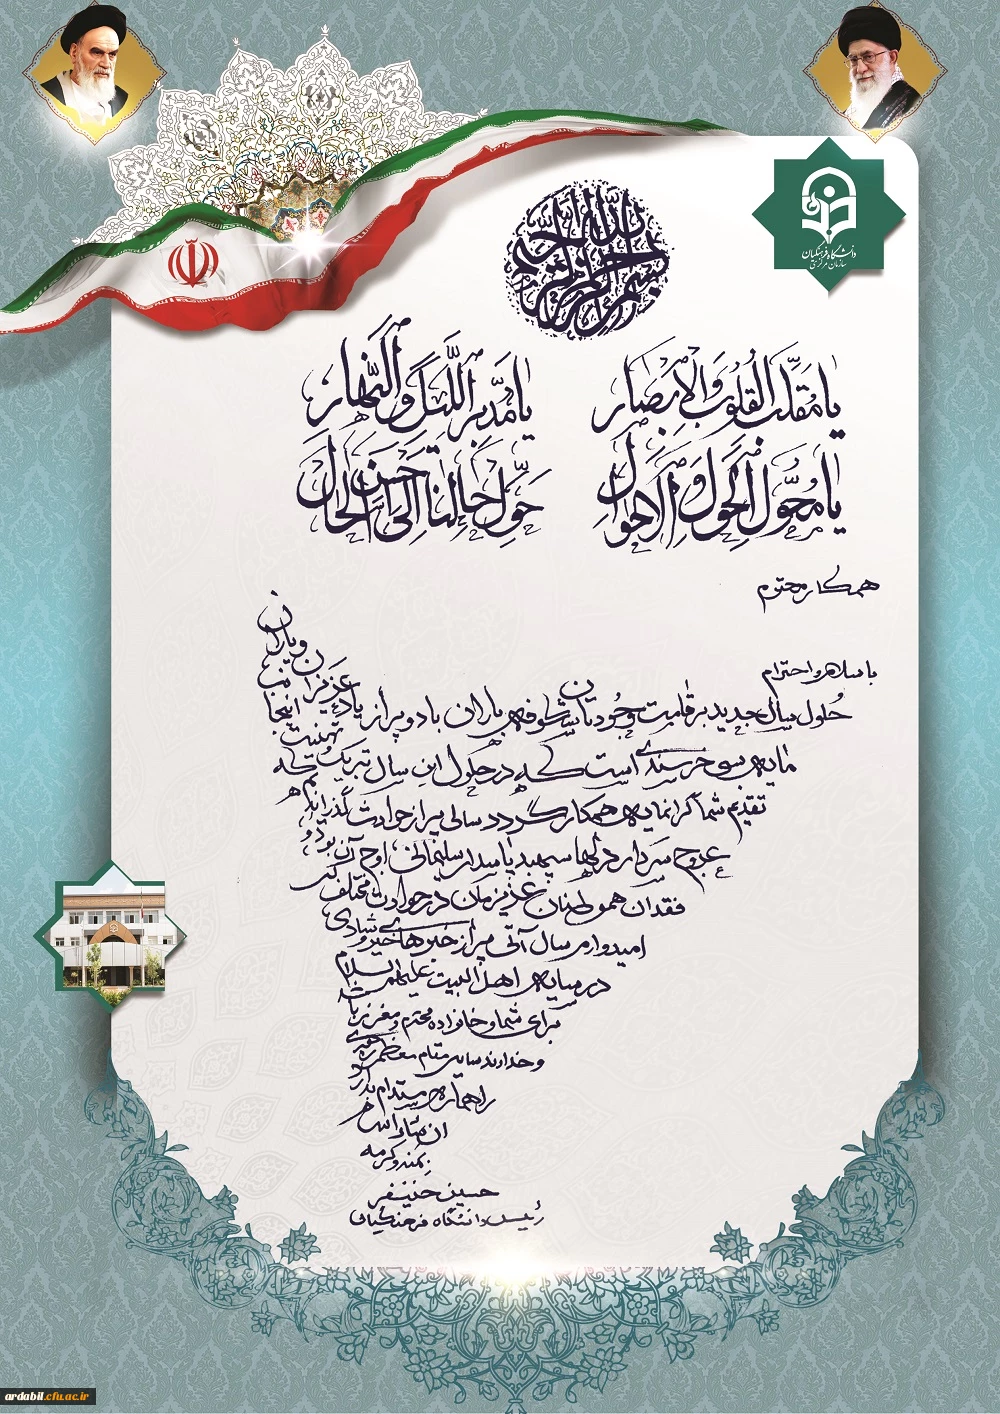 بسم الله الرحمن الرحیم
دانشگاه فرهنگیان
سازمان مرکزی
یا مقلب القلوب والابصار یا مدبر اللیل والنهار
یا محول الحول والاحوال حول حالنا الی احسن الحال
همکار محترم
با سلام و احترام
حلول سال جدید بر قامت وجودتان شکوفه باران باد و پر از یاد عزیزان و یاران
مایه بسی خرسندی است که در حلول این سال تبریک و تهنیت
تقدیم شما گرانمایه همکار گردد سالی پر از حوادث گذراندیم که
عروج سردار دلها سپهبد پاسدار سلیمانی اوج آن بود و
فقدان هموطنان عزیزمان در حوادث مختلف
امیدوارم سال آتی پر از خبرهای خیر و شادی
در سایه اهل البیت علیهم السلام
برای شما و خانواده محترم و معزز باشد
و خداوند سایه مقام معظم رهبری
را هماره مستدام بدارد
ان شاء الله
بمنه و کرمه
حسین خنیفر
رئیس دانشگاه فرهنگیان
ardabil.cfu.ac.ir